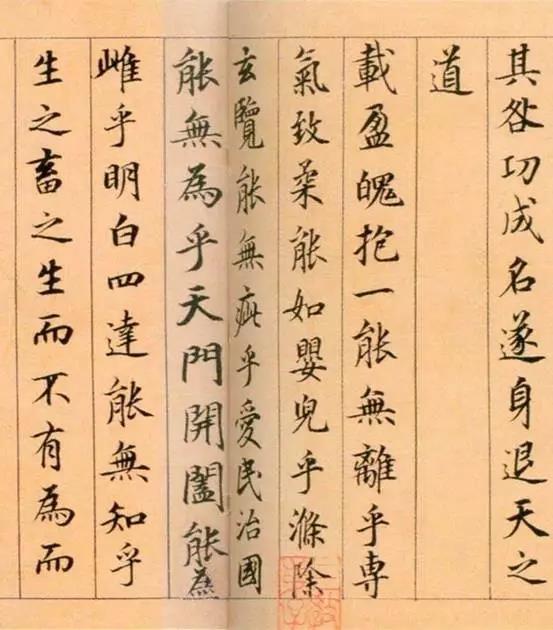 其咎功成名遂身退天之
道
載盈魄抱一能無離乎専
氣致柔能如嬰兒乎滌除
玄覽能無疵乎愛民治國
能無為乎天門開闔能為
雌乎明白四達能無知乎
生之畜之生而不有為而